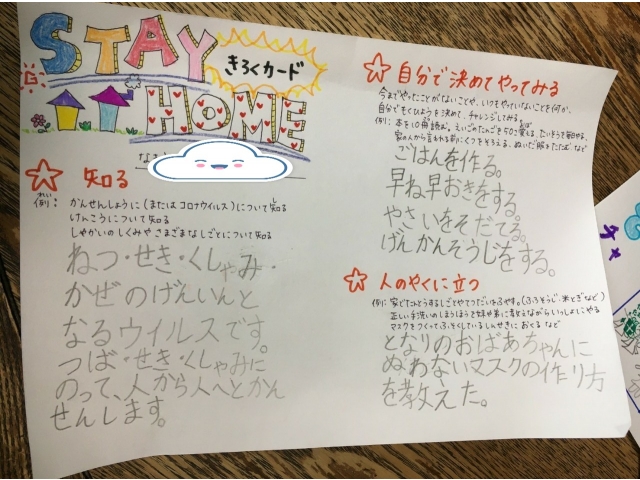 STAY
HOME
きろくカード
な
☆ 知る
れい
例: かんせんしょうに(またはコロナウイルス)について知る
けんこうについて知る
しゃかいのしくみやさまざまなしごとについて知る
ねつ・せき・くしゃみ・
かぜのげんいんと
なるウイルスです。
つば・せき・くしゃみに
のって、人から人へとかん
せんします。
☆ 自分で決めてやってみる
今までやったことがないことや、いつもやっていないことを何か、
自分でもくひょうを決めて、チャレンジしてみる。
例: 本を10冊読む。えいごのたんごを50こ覚える、たいそうを毎日やる、
家の人から言われる前にくつをそろえる、ぬいだ服をたたむ、など
ごはんを作る。
早ね早おきをする。
やさいをそだてる。
げんかんそうじをする。
☆ 人のやくに立つ
例: 家でたんとうするしごとやてつだいをふやす。(ふろそうじ・米とぎなど)
正しい手洗いのしほうほうを妹や弟に
ながらいっしょにやる
マスクをつくって、ふそくしているしんせきにおくる など
となりのおばあちゃんに
ぬわないマスクの作り方
を教えた。
チャ